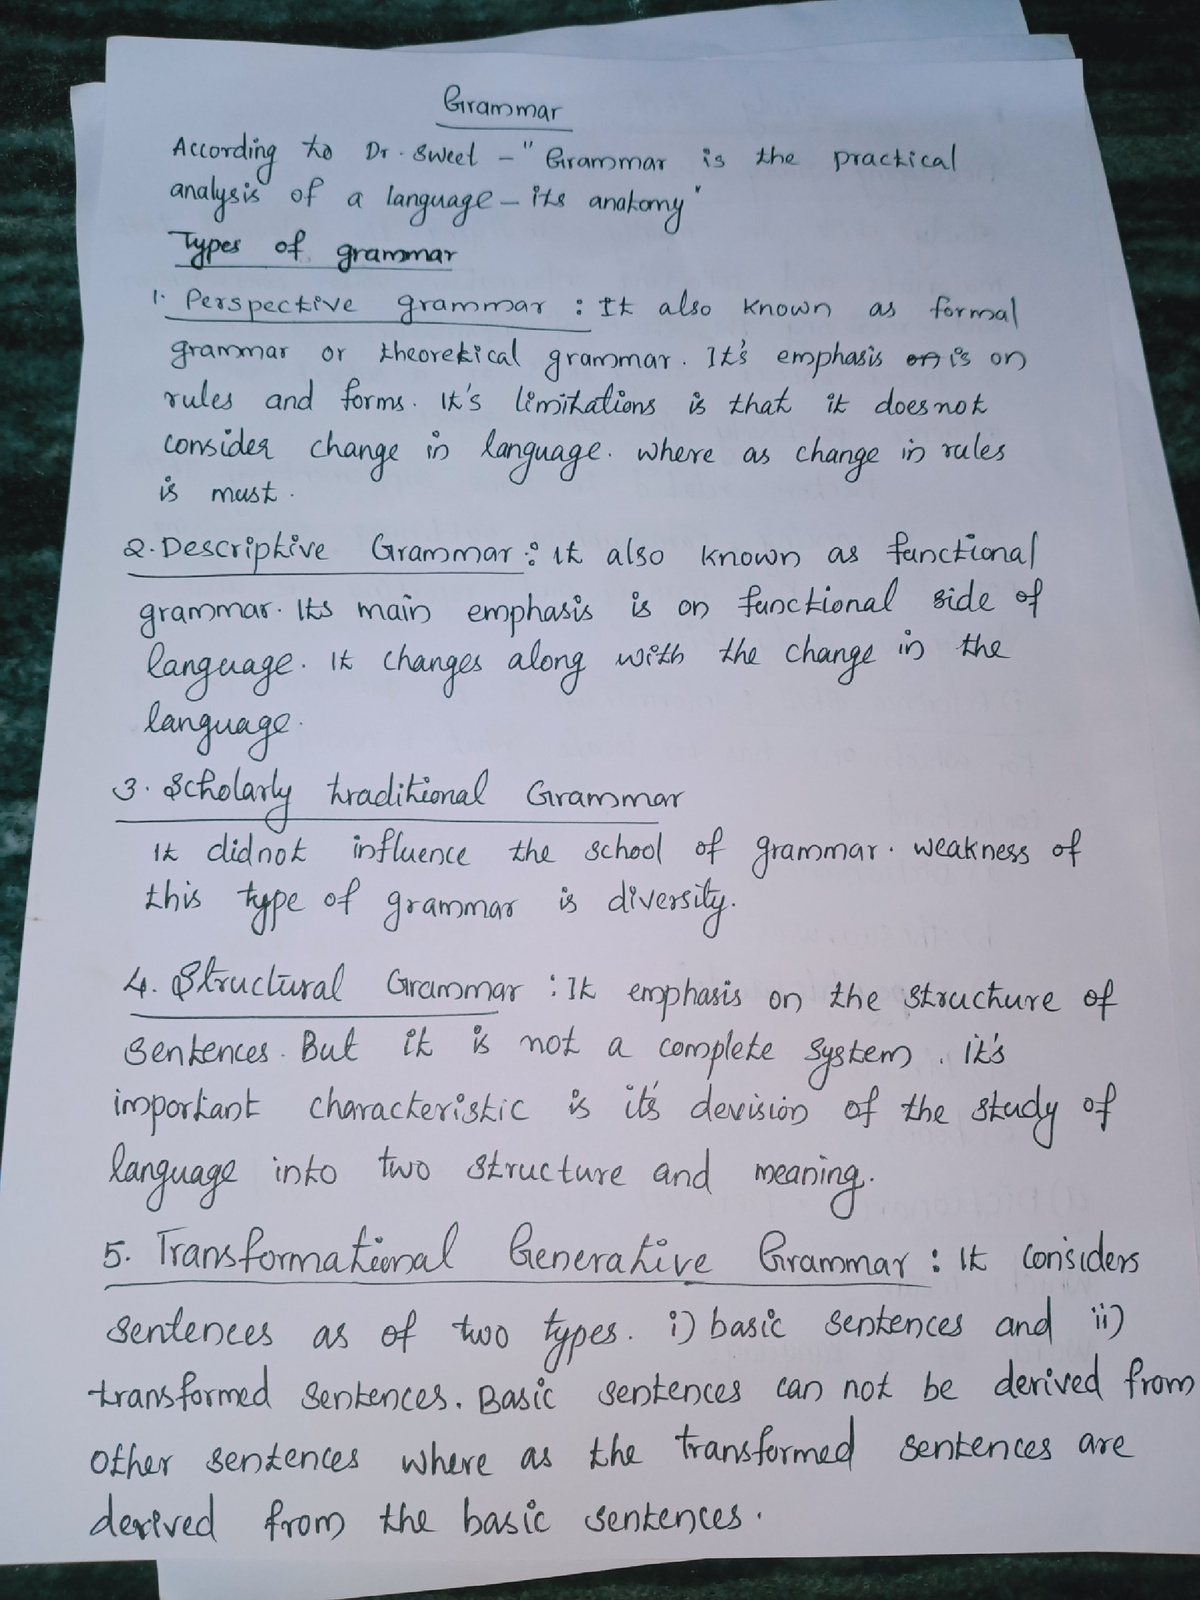 Grammar
According to Dr. Sweet - " Grammar is the practical
analysis of a language - its anatomy"
Types of grammar
1. Perspective grammar : It also known as formal
grammar or theoretical grammar. It's emphasis on is on
rules and forms. It's limitations is that it does not
consider change in language. where as change in rules
is must.
2. Descriptive Grammar : it also known as functional
grammar. Its main emphasis is on functional side of
language. It changes along with the change in the
language.
3. Scholarly traditional Grammar
It did not influence the school of grammar. weakness of
this type of grammar is diversity.
4. Structural Grammar : It emphasis on the structure of
sentences. But it is not a complete system. it's
important characteristic is it's devision of the study of
language into two structure and meaning.
5. Transformational Generative Grammar : It considers
sentences as of two types. i) basic sentences and ii)
transformed sentences. Basic sentences can not be derived from
other sentences where as the transformed sentences are
derived from the basic sentences.